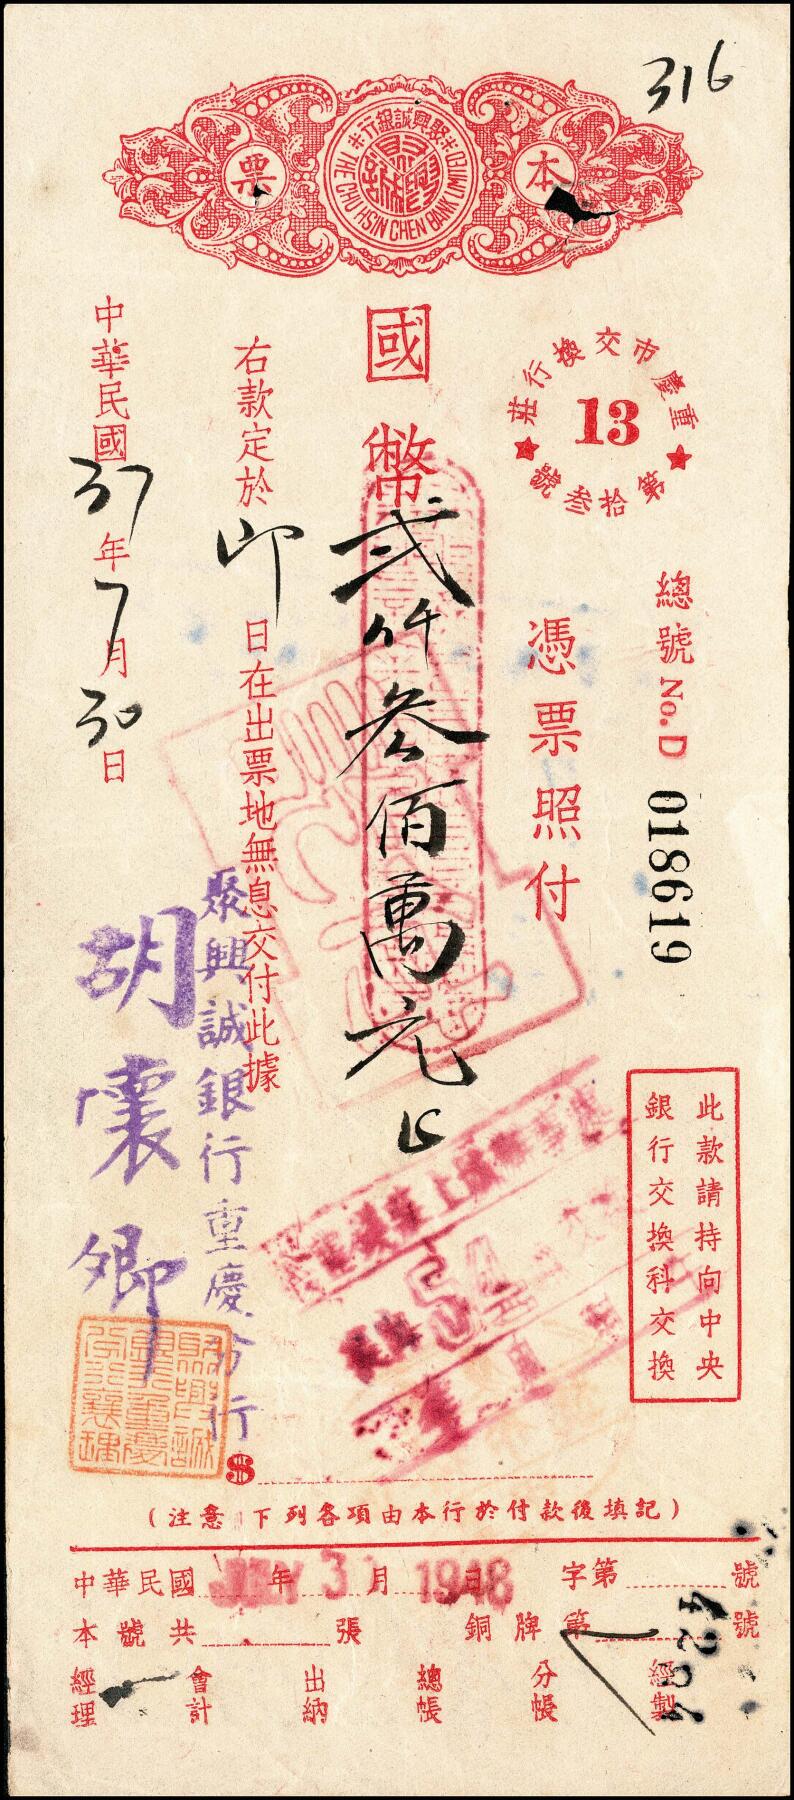 316
本票
聚興誠銀行
THE CHU HSIN CHEN BANK LIMITED
重慶市交換行莊
13
第拾叁號
總號 No. D 018619
憑票照付
國幣貳仟叁佰萬元正
右款定於即日在出票地無息交付此據
中華民國37年7月30日
此款請持向中央
銀行交換科交換
聚興誠銀行重慶分行
胡震卿
$
(注意 下列各項由本行於付款後填記)
中華民國 年 月 日 字第 號
3 1948
本號共 張 銅牌第 號
經理 會計 出納 總帳 分帳 經製